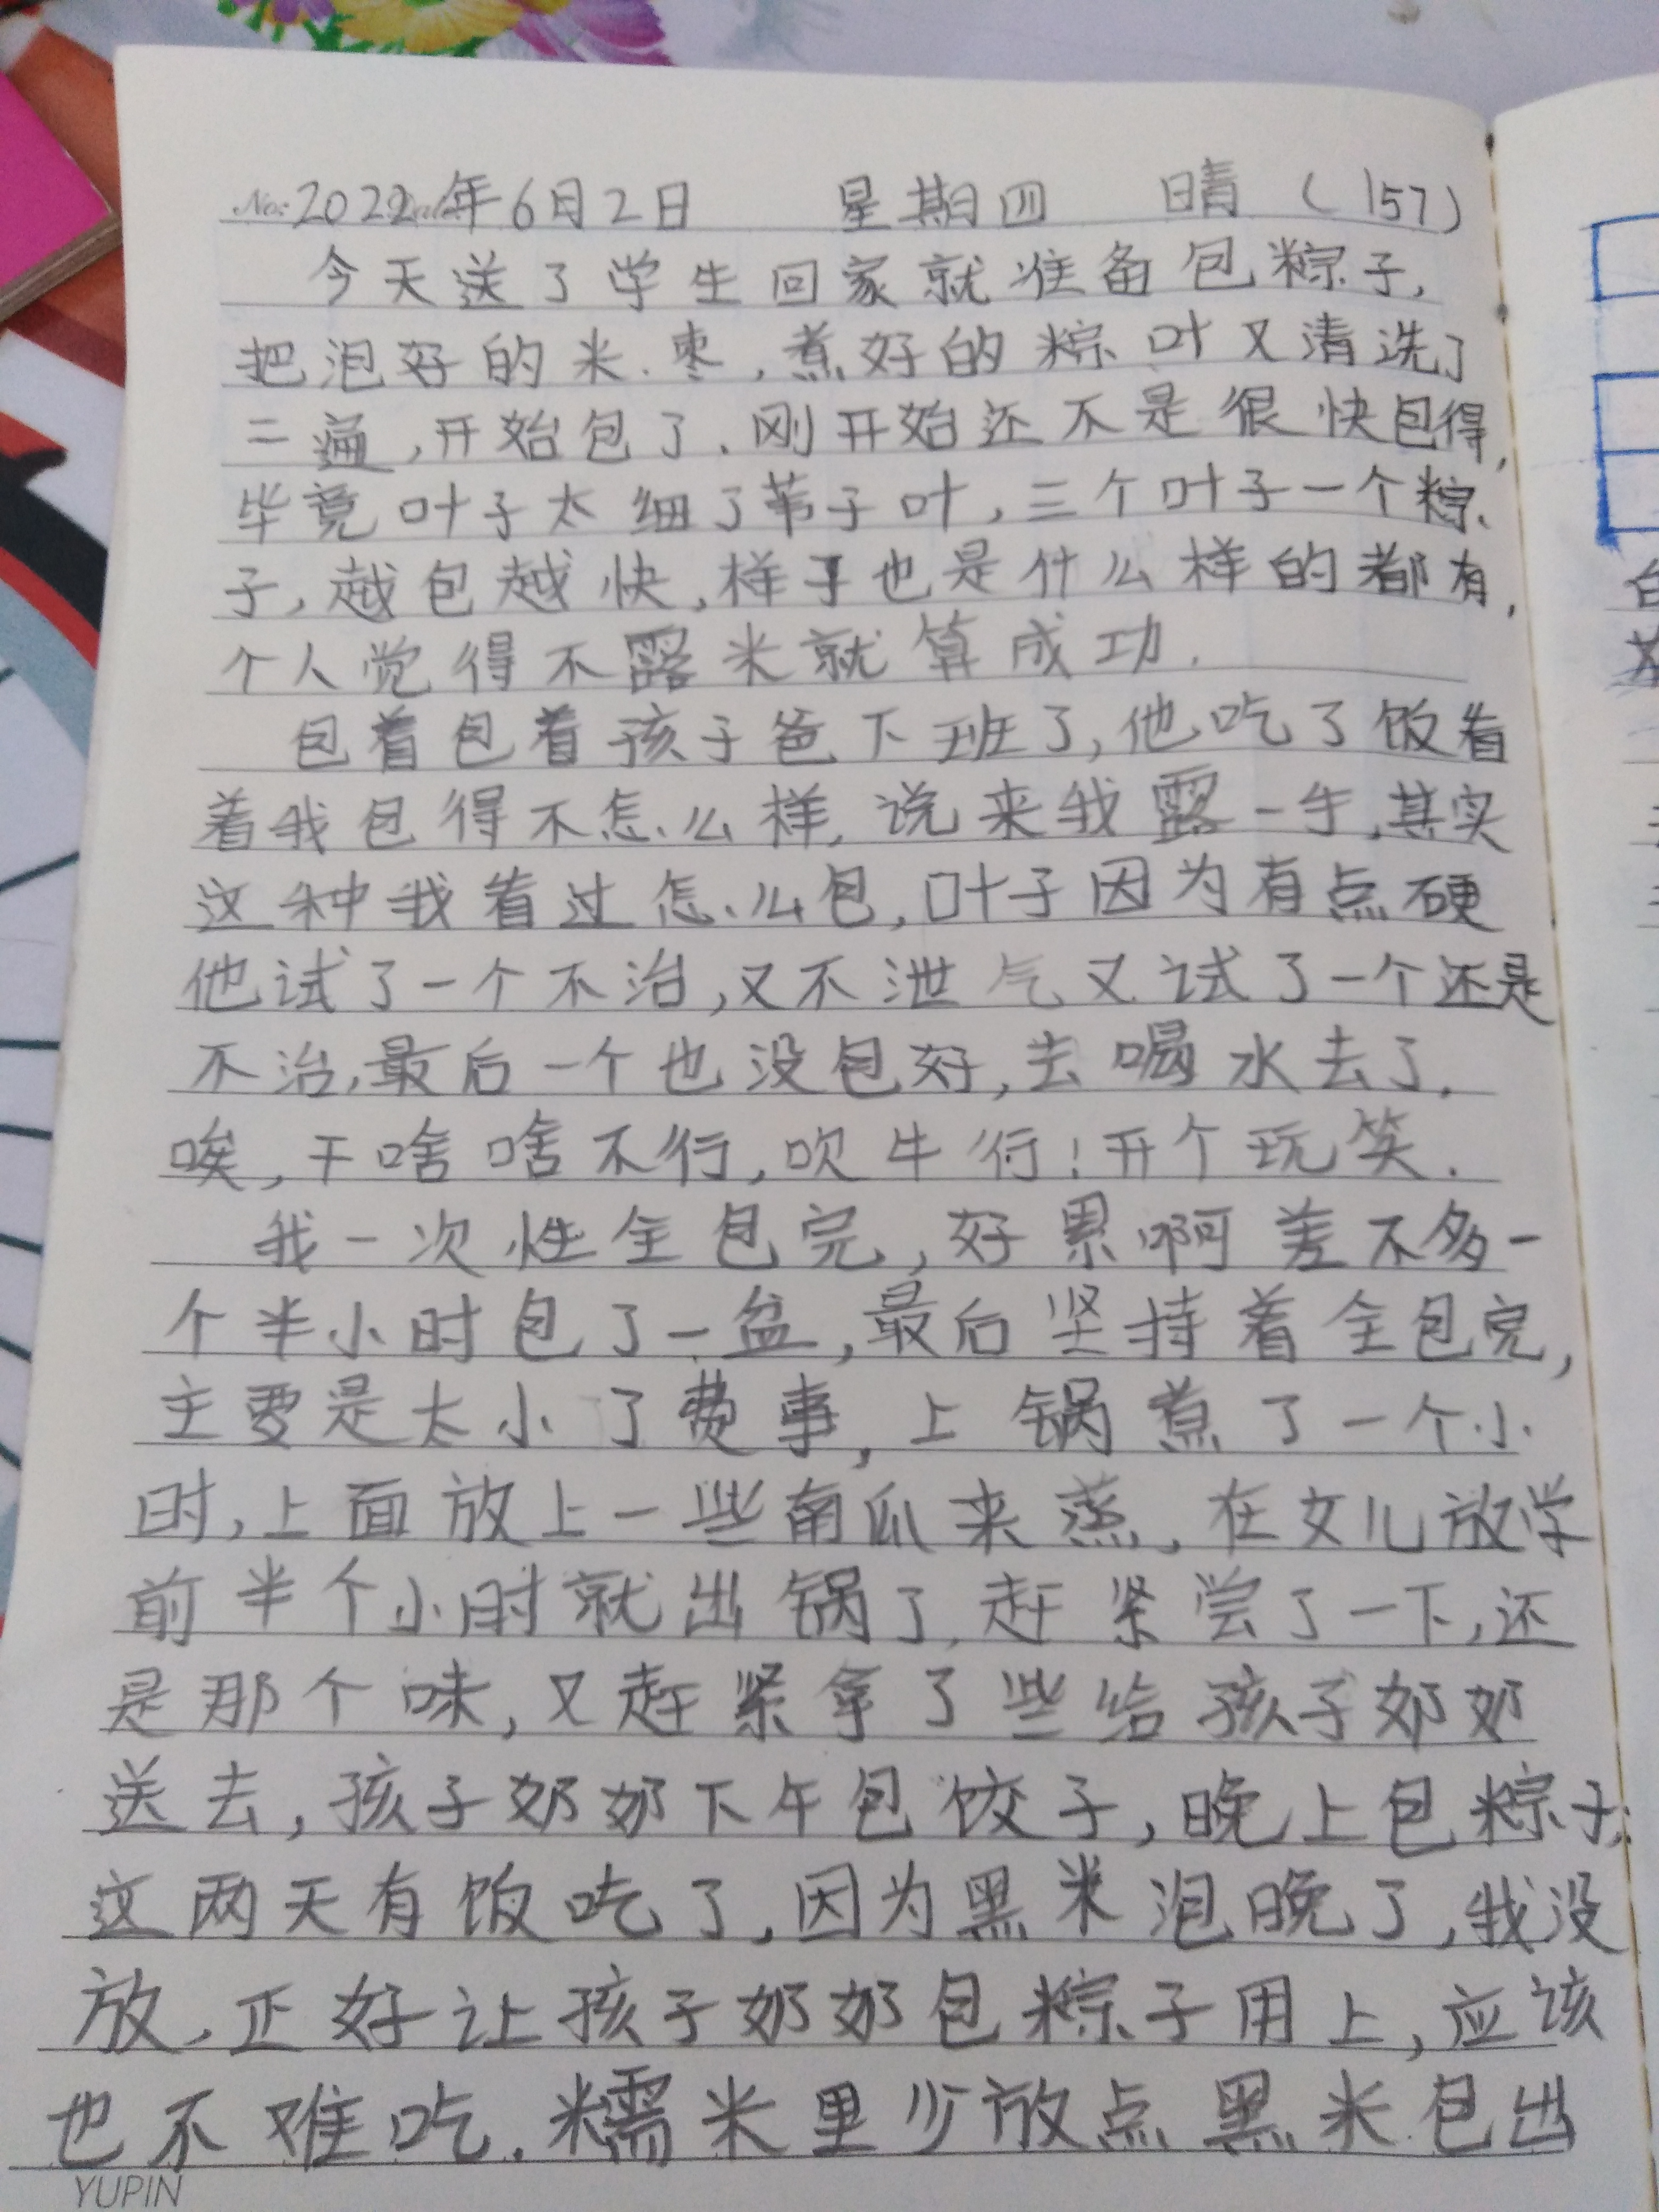 No: 2022年6月2日 星期四 晴 (157)
今天送了学生回家就准备包粽子,
把泡好的米.枣,煮好的粽叶又清洗了
二遍,开始包了.刚开始还不是很快包得,
毕竟叶子太细了苇子叶,三个叶子一个粽
子,越包越快,样子也是什么样的都有,
个人觉得不露米就算成功.
包着包着孩子爸下班了,他吃了饭看
着我包得不怎么样,说来我露一手,其实
这种我看过怎么包,叶子因为有点硬
他试了一个不治,又不泄气又试了一个还是
不治,最后一个也没包好,去喝水去了.
唉,干啥啥不行,吹牛行!开个玩笑.
我一次性全包完,好累啊差不多一
个半小时包了一盆,最后坚持着全包完,
主要是太小了费事,上锅煮了一个小
时,上面放上一些南瓜来蒸,在女儿放学
前半个小时就出锅了,赶紧尝了一下,还
是那个味,又赶紧拿了些给孩子奶奶
送去,孩子奶奶下午包饺子,晚上包粽子;
这两天有饭吃了,因为黑米泡晚了,我没
放,正好让孩子奶奶包粽子用上,应该
也不难吃.糯米里少放点黑米包出
YUPIN